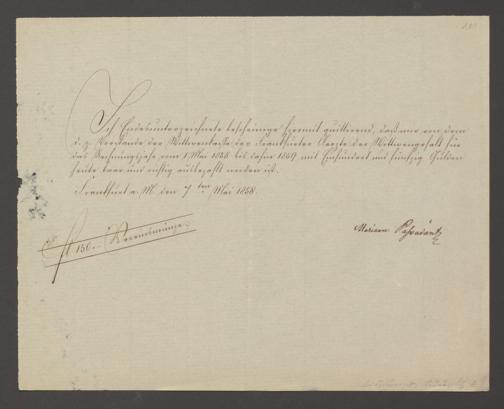 Ich Endesunterzeichnete bescheinige hiermit quittirend, daß mir von dem
d. z. Vorstande der Wittwenkasse der Frankfurter Aerzte der Wittwengehalt für
das Rechnungsjahr vom 1 Mai 1858 bis dahin 1859 mit Einhundert und fünfzig Gulden
heute baar und richtig ausbezahlt worden ist.
Frankfurt a. M. den 7ten Mai 1858.
fl 150.- Vereinsmünze.
Mariane Passavant